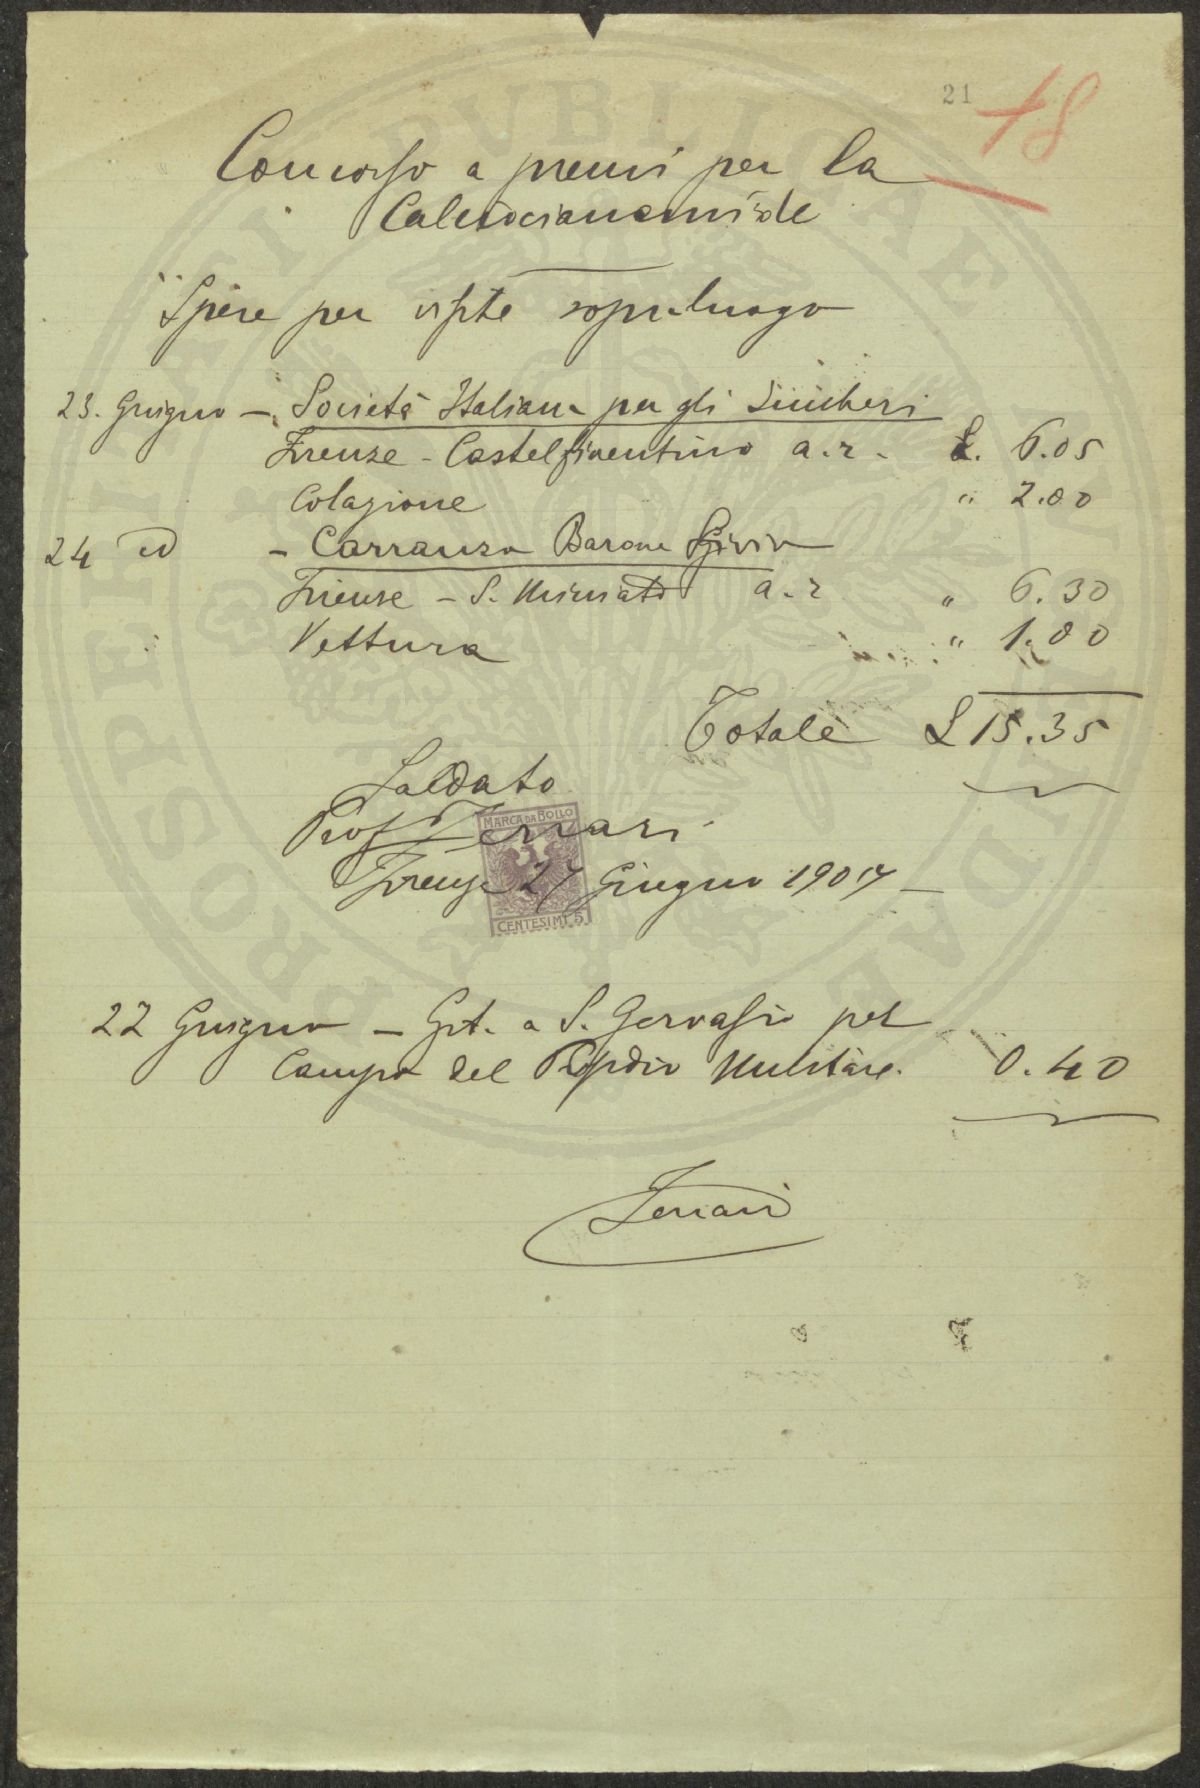 21 18
Concorso a premi per la
Calciocianamide
Spese per visite sopraluogo
23. Giugno - Società Italiana per gli Zuccheri
Firenze - Castelfiorentino a.r. L. 6.05
Colazione " 2.00
24 id - Carranza Barone
Firenze - S. Miniato a.r " 6.30
Vettura " 1.00
Totale L 15.35
Saldato
Prof Ferrari
MARCA DA BOLLO
Firenze 27 Giugno 1907
CENTESIMI 5
22 Giugno - Git. a S. Gervasio pel
Campo del Podio Militare. 0.40
Ferrari
PROSPERITATI PVBLICAE AVGENDAE